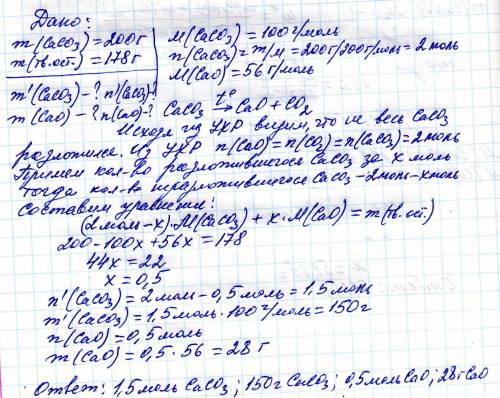 Дано:
m(CaCO3) = 200г
m(тв.ост.) = 178г
m'(CaCO3) - ? n'(CaCO3)-?
m(CaO) - ? n(CaO)-?
M(CaCO3) = 100г/моль
n(CaCO3) = m/M = 200г/200г/моль = 2моль
M(CaO) = 56г/моль
CaCO3 t°→ CaO + CO2
Исходя из УХР видим, что не весь CaCO3
разложился. Из УХР n(CaO) = n(CO2) = n(CaCO3) = 2моль
Примем кол-во разложившегося CaCO3 за x моль
тогда кол-во неразложившегося CaCO3 - 2моль - x моль
Составим уравнение:
(2моль - x)·M(CaCO3) + x·M(CaO) = m(тв.ост)
200 - 100x + 56x = 178
44x = 22
x = 0,5
n'(CaCO3) = 2моль - 0,5моль = 1,5моль
m'(CaCO3) = 1,5моль · 100г/моль = 150г
n(CaO) = 0,5моль
m(CaO) = 0,5 · 56 = 28г
Ответ: 1,5моль CaCO3; 150г CaCO3; 0,5моль CaO; 28г CaO